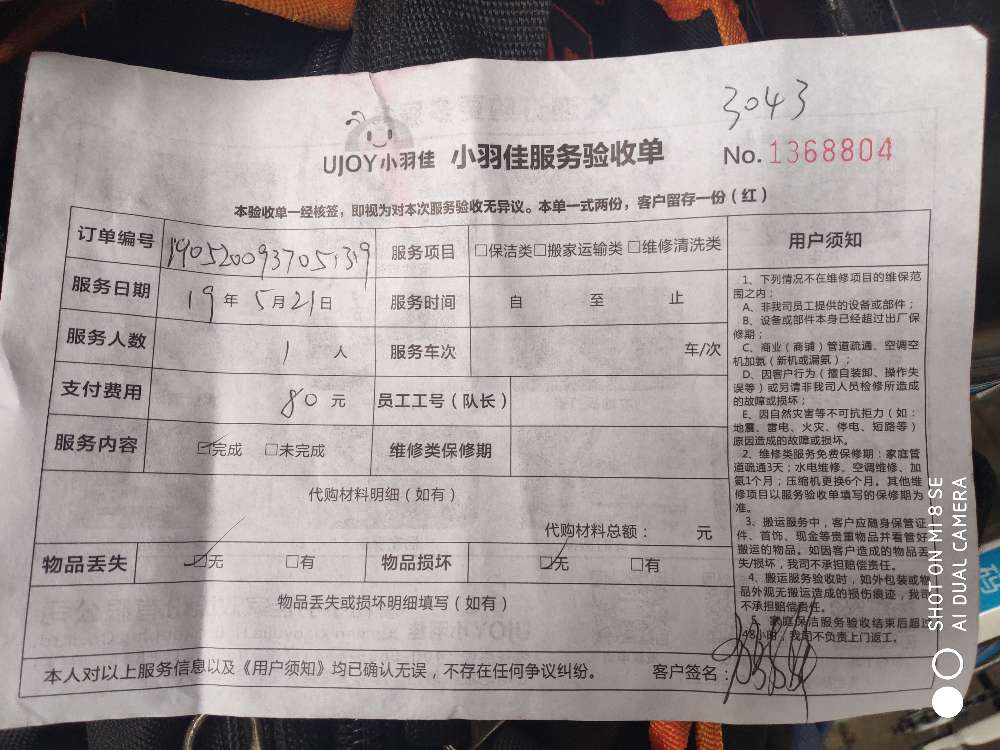 3043
UJOY小羽佳 小羽佳服务验收单 No.1368804
本验收单一经核签，即视为对本次服务验收无异议。本单一式两份，客户留存一份（红）
订单编号 服务项目 □保洁类□搬家运输类 □维修清洗类
服务日期 19年5月21日 服务时间 自 至 止
服务人数 1 人 服务车次 车/次
支付费用 80 元 员工工号（队长）
服务内容 ☑完成 □未完成 维修类保修期
代购材料明细（如有）
代购材料总额： 元
物品丢失 ☑无 □有 物品损坏 ☑无 □有
物品丢失或损坏明细填写（如有）
本人对以上服务信息以及《用户须知》均已确认无误，不存在任何争议纠纷。 客户签名：
用户须知
1、下列情况不在维修项目的维保范
围之内：
A、非我司员工提供的设备或部件；
B、设备或部件本身已经超过出厂保
修期；
C、商业（商铺）管道疏通、空调空
机加氨（新机或漏氨）；
D、因客户行为（擅自装卸、操作失
误等）或另请非我司人员检修所造成
的故障或损坏；
E、因自然灾害等不可抗拒力（如：
地震、雷电、火灾、停电、短路等）
原因造成的故障或损坏。
2、维修类服务免费保修期：家庭管
道疏通3天；水电维修、空调维修、加
氨1个月；压缩机更换6个月。其他维
修项目以服务验收单填写的保修期为
准。
3、搬运服务中，客户应随身保管证
件、首饰、现金等贵重物品并看管好
搬运的物品。如因客户造成的物品丢
失/损坏，我司不承担赔偿责任。
4、搬运服务验收时，如外包装或物
品外观无搬运造成的损伤痕迹，我司
不承担赔偿责任。
5、家庭保洁服务验收结束后超过
48小时，我司不负责上门返工。
SHOT ON MI 8 SE
AI DUAL CAMERA